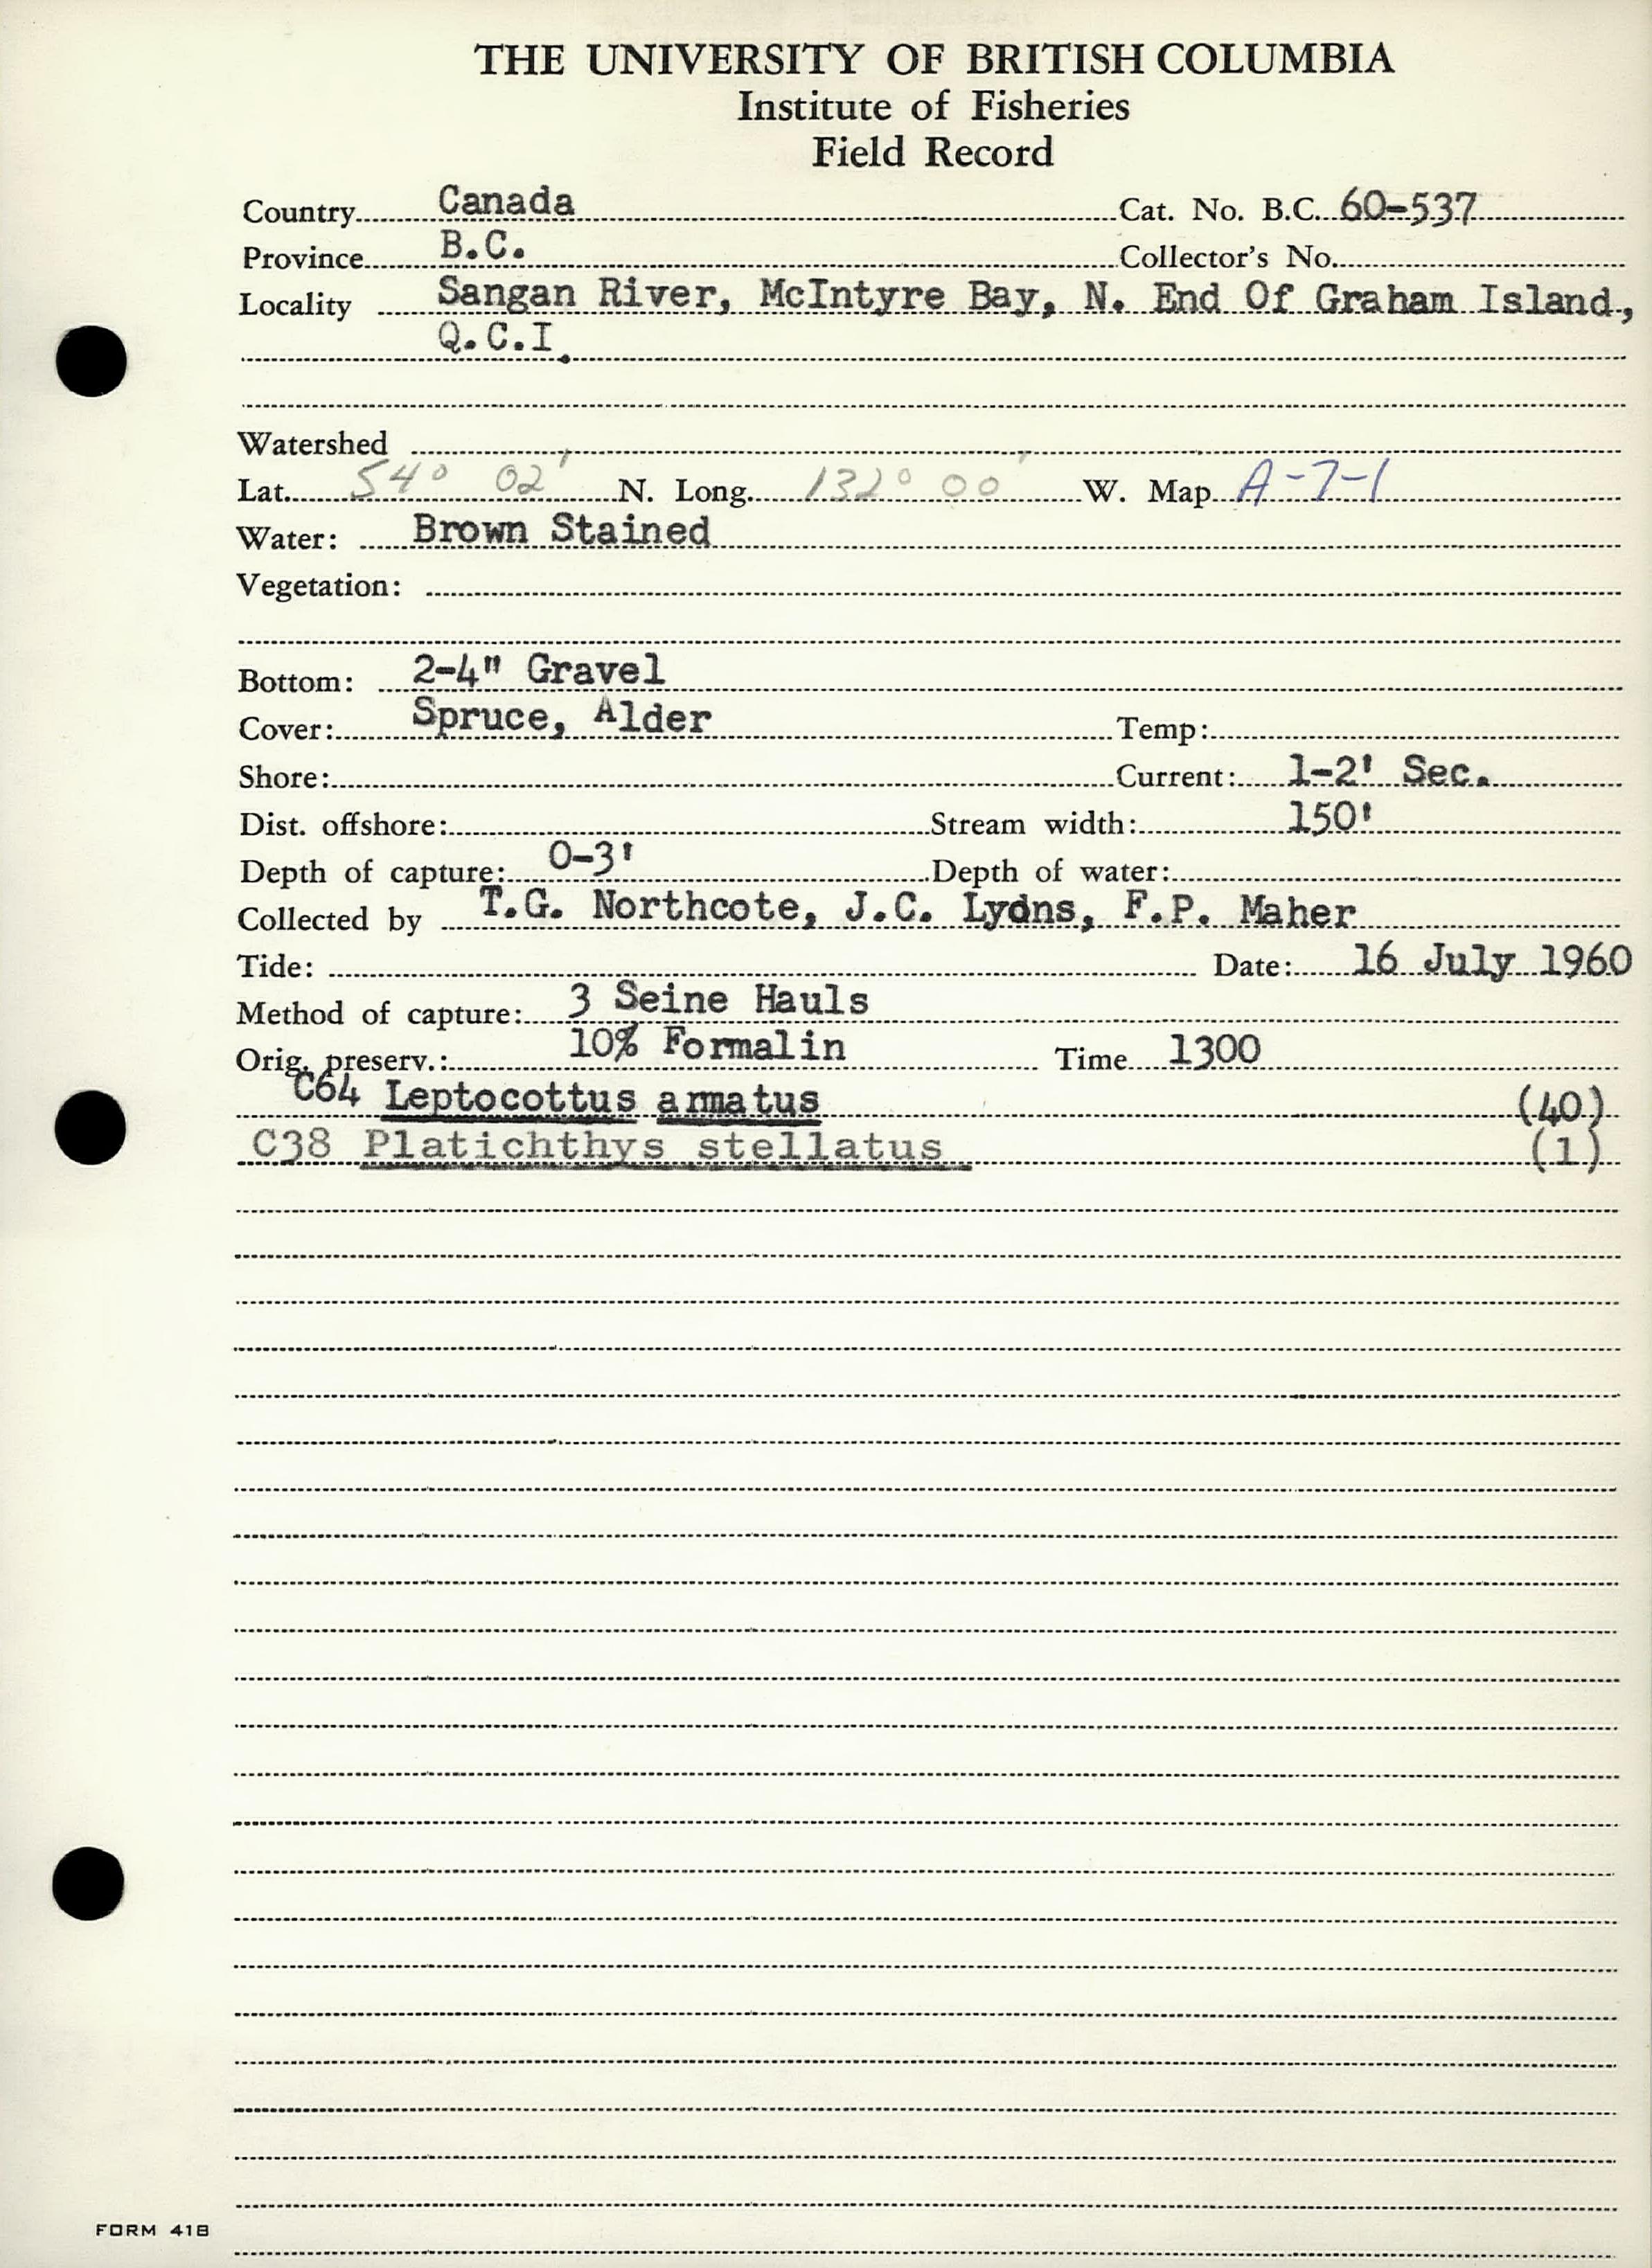 THE UNIVERSITY OF BRITISH COLUMBIA
Institute of Fisheries
Field Record
Country Canada Cat. No. B.C. 60-537
Province B.C. Collector's No.
Locality Sangan River, McIntyre Bay, N. End Of Graham Island,
Q.C.I.
Watershed
Lat. 54° 02' N. Long. 132° 00' W. Map A-7-1
Water: Brown Stained
Vegetation:
Bottom: 2-4" Gravel
Cover: Spruce, Alder Temp:
Shore: Current: 1-2' Sec.
Dist. offshore: Stream width: 150'
Depth of capture: 0-3' Depth of water:
Collected by T.G. Northcote, J.C. Lyons, F.P. Maher
Tide: Date: 16 July 1960
Method of capture: 3 Seine Hauls
Orig. preserv.: 10% Formalin Time 1300
C64 Leptocottus armatus (40)
C38 Platichthys stellatus (1)
FORM 41B